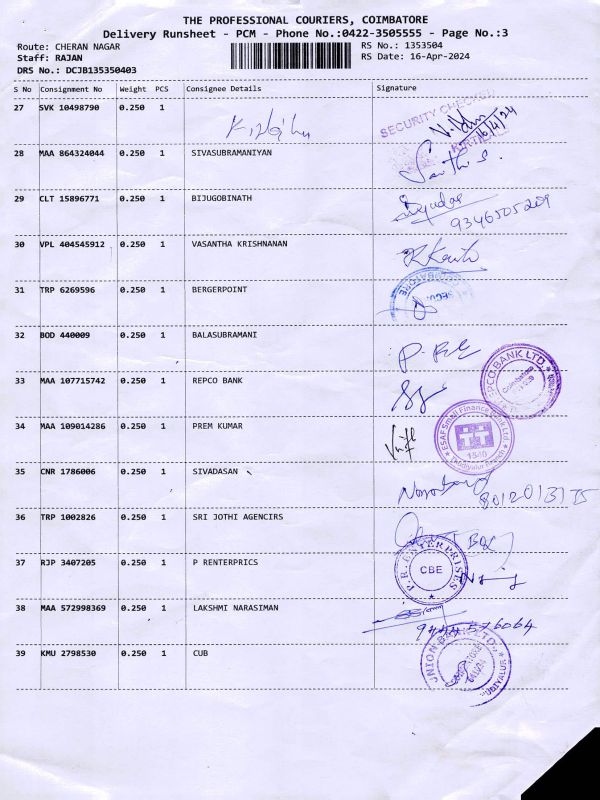 THE PROFESSIONAL COURIERS, COIMBATORE
Delivery Runsheet - PCM - Phone No.:0422-3505555 - Page No.:3
Route: CHERAN NAGAR RS No.: 1353504
Staff: RAJAN RS Date: 16-Apr-2024
DRS No.: DCJB135350403
S No Consignment No Weight PCS Consignee Details Signature
27 SVK 10498790 0.250 1
SECURITY CHECKED
16/4/24
28 MAA 864324044 0.250 1 SIVASUBRAMANIYAN
29 CLT 15896771 0.250 1 BIJUGOBINATH
9346505209
30 VPL 404545912 0.250 1 VASANTHA KRISHNANAN
31 TRP 6269596 0.250 1 BERGERPOINT
32 BOD 440009 0.250 1 BALASUBRAMANI
33 MAA 107715742 0.250 1 REPCO BANK
REPCO BANK LTD.
Coimbatore
34 MAA 109014286 0.250 1 PREM KUMAR
ESAF Small Finance Bank Ltd.
1540
35 CNR 1786006 0.250 1 SIVADASAN
36 TRP 1002826 0.250 1 SRI JOTHI AGENCIRS
37 RJP 3407205 0.250 1 P RENTERPRICS
P.R. ENTERPRISES
CBE
38 MAA 572998369 0.250 1 LAKSHMI NARASIMAN
9444576064
39 KMU 2798530 0.250 1 CUB
UNION BANK LTD.